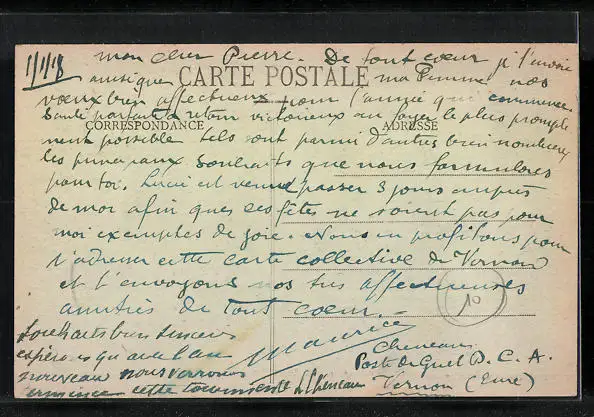 1/1/18
mon cher Pierre. De tout cœur je t'envoie
ainsi que ma femme nos
CARTE POSTALE
vœux bien affectueux pour l'année qui commence.
Santé parfaite retour victorieux au foyer le plus prompte
CORRESPONDANCE
ADRESSE
ment possible tels sont parmi d'autres bien nombreux
les principaux souhaits que nous formulons
pour toi. Lucie est venue passer 3 jours auprès
de moi afin que ces fêtes ne soient pas pour
moi exemptes de joie. Nous en profitons pour
t'adresser cette carte collective de Vernon
et t'envoyons nos très affectueuses
amitiés de tout cœur.
Maurice
10
Souhaits bien sincères
espérons qu'avec l'an
nouveau nous verrons
cette tourmente L Cheneau
Cheneau
Poste de Guet D.C.A.
Vernon (Eure)